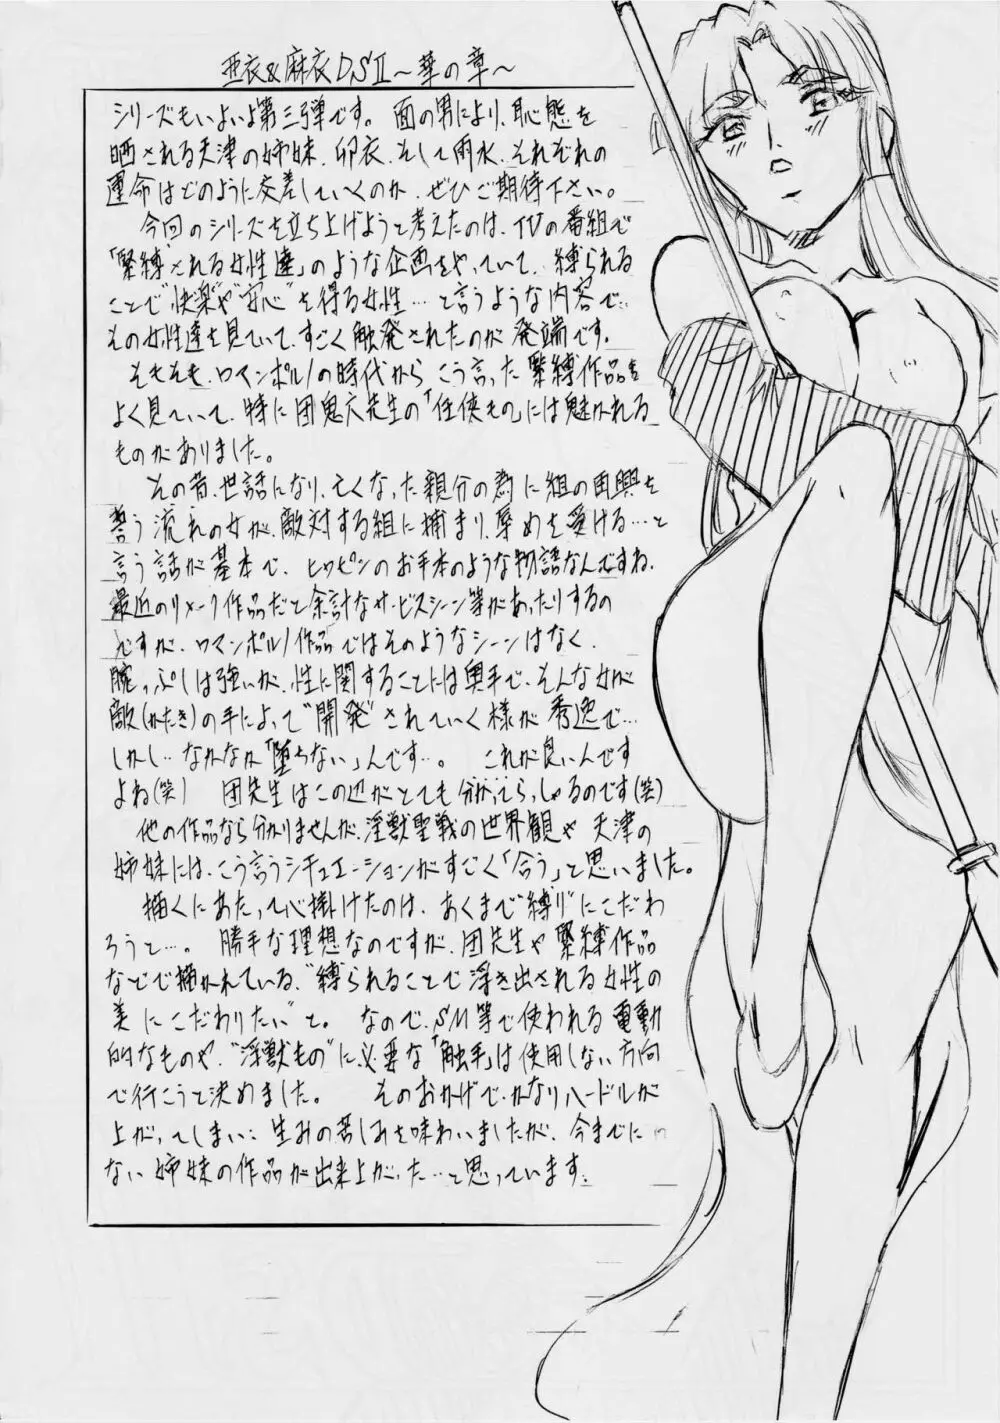 亜衣&麻衣D,SⅡ～華の章～
シリーズもいよいよ第三弾です。面の男により、恥態を
晒される天津の姉妹、卯衣、そして雨水、それぞれの
運命はどのように交差していくのか、ぜひご期待下さい。
今回のシリーズを立ち上げようと考えたのは、TVの番組で
「緊縛される女性達」のような企画をやっていて、縛られる
ことで"快楽"や"安心"を得る女性…と言うような内容で、
その女性達を見ていて、すごく触発されたのが発端です。
そもそも、ロマンポルノの時代からこう言った緊縛作品を
よく見ていて、特に団鬼六先生の「任侠もの」には魅かれる
ものがありました。
その昔、世話になり、亡くなった親分の為に組の再興を
誓う流れの女が、敵対する組に捕まり、辱めを受ける…と
言う話が基本で、ヒロピンのお手本のような物語なんですね。
最近のリメーク作品だと余計なサービスシーン等があったりするの
ですが、ロマンポルノ作品ではそのようなシーンはなく、
腕っぷしは強いが、性に関することには奥手で、そんな女が
敵(かたき)の手によって"開発"されていく様が秀逸で…
しかし…なかなか「堕ちない」んです…。 これが良いんです
よね(笑) 団先生はこの辺がとても分かってらっしゃるのです(笑)
他の作品なら分かりませんが、淫獣聖戦の世界観や天津の
姉妹には、こう言うシチュエーションがすごく「合う」と思いました。
描くにあたって心掛けたのは、あくまで"縛り"にこだわ
ろうと…。勝手な理想なのですが、団先生や緊縛作品
などで描かれている、"縛られることで浮き出される女性の
美にこだわりたい"と。なので、SM等で使われる電動
的なものや、"淫獣もの"に必要な「触手」は使用しない方向
で行こうと決めました。 そのおかげで、かなりハードルが
上がってしまい…生みの苦しみを味わいましたが、今までに
ない姉妹の作品が出来上がった…と思っています。